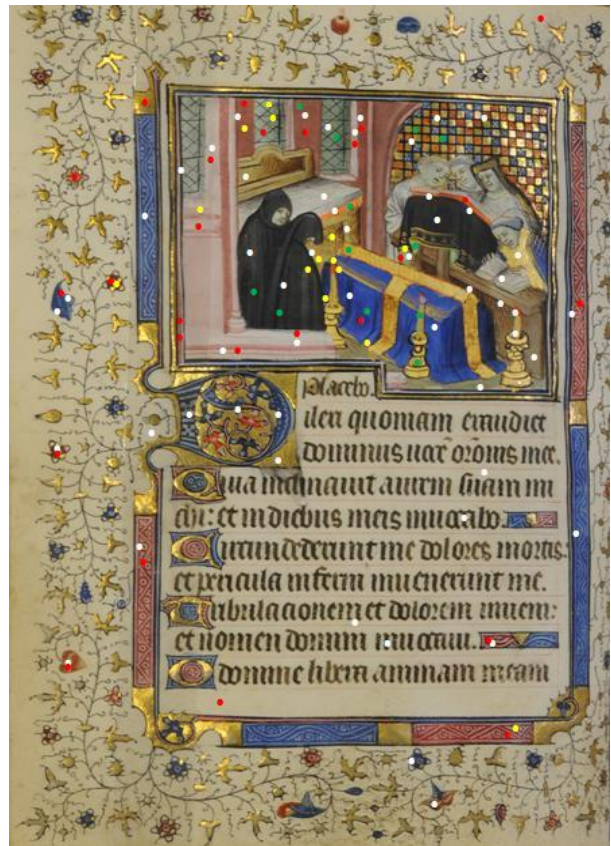 Placebo.
Dilexi quoniam exaudiet
dominus vocē orōnis mee.
Quia inclinavit aurem suam mi
chi: et in diebus meis invocabo.
Circundederunt me dolores mortis:
et pericula inferni invenerunt me.
Tribulacionem et dolorem inveni:
et nomen domini invocavi.
O domine libera animam meam